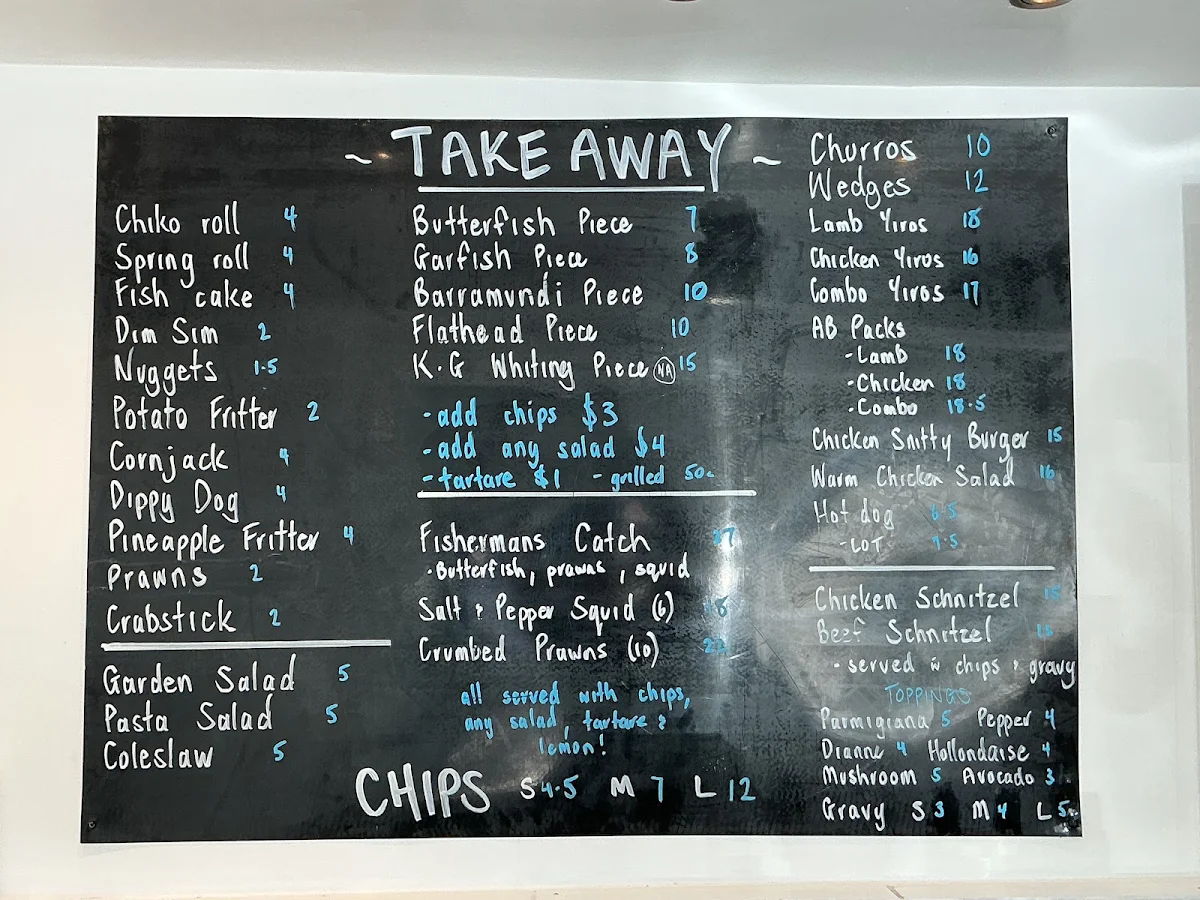 ~ TAKE AWAY ~
Chiko roll 4
Spring roll 4
Fish cake 4
Dim Sim 2
Nuggets 1.5
Potato Fritter 2
Cornjack 4
Dippy Dog 4
Pineapple Fritter 4
Prawns 2
Crabstick 2
Garden Salad 5
Pasta Salad 5
Coleslaw 5
Butterfish Piece 7
Garfish Piece 8
Barramundi Piece 10
Flathead Piece 10
K.G Whiting Piece NA 15
- add chips $3
- add any salad $4
- tartare $1 - grilled 50c
Fishermans Catch
- Butterfish, prawns, squid
Salt & Pepper Squid (6) 18
Crumbed Prawns (10) 22
all served with chips,
any salad, tartare &
lemon!
CHIPS S 4.5 M 7 L 12
Churros 10
Wedges 12
Lamb Yiros 18
Chicken Yiros 16
Combo Yiros 17
AB Packs
- Lamb 18
- Chicken 18
- Combo 18.5
Chicken Snitty Burger 15
Warm Chicken Salad 16
Hot dog
- LOT
Chicken Schnitzel
Beef Schnitzel
- served w chips & gravy
TOPPINGS
Parmigiana 5 Pepper 4
Dianne 4 Hollondaise 4
Mushroom 5 Avocado 3
Gravy S 3 M 4 L 5